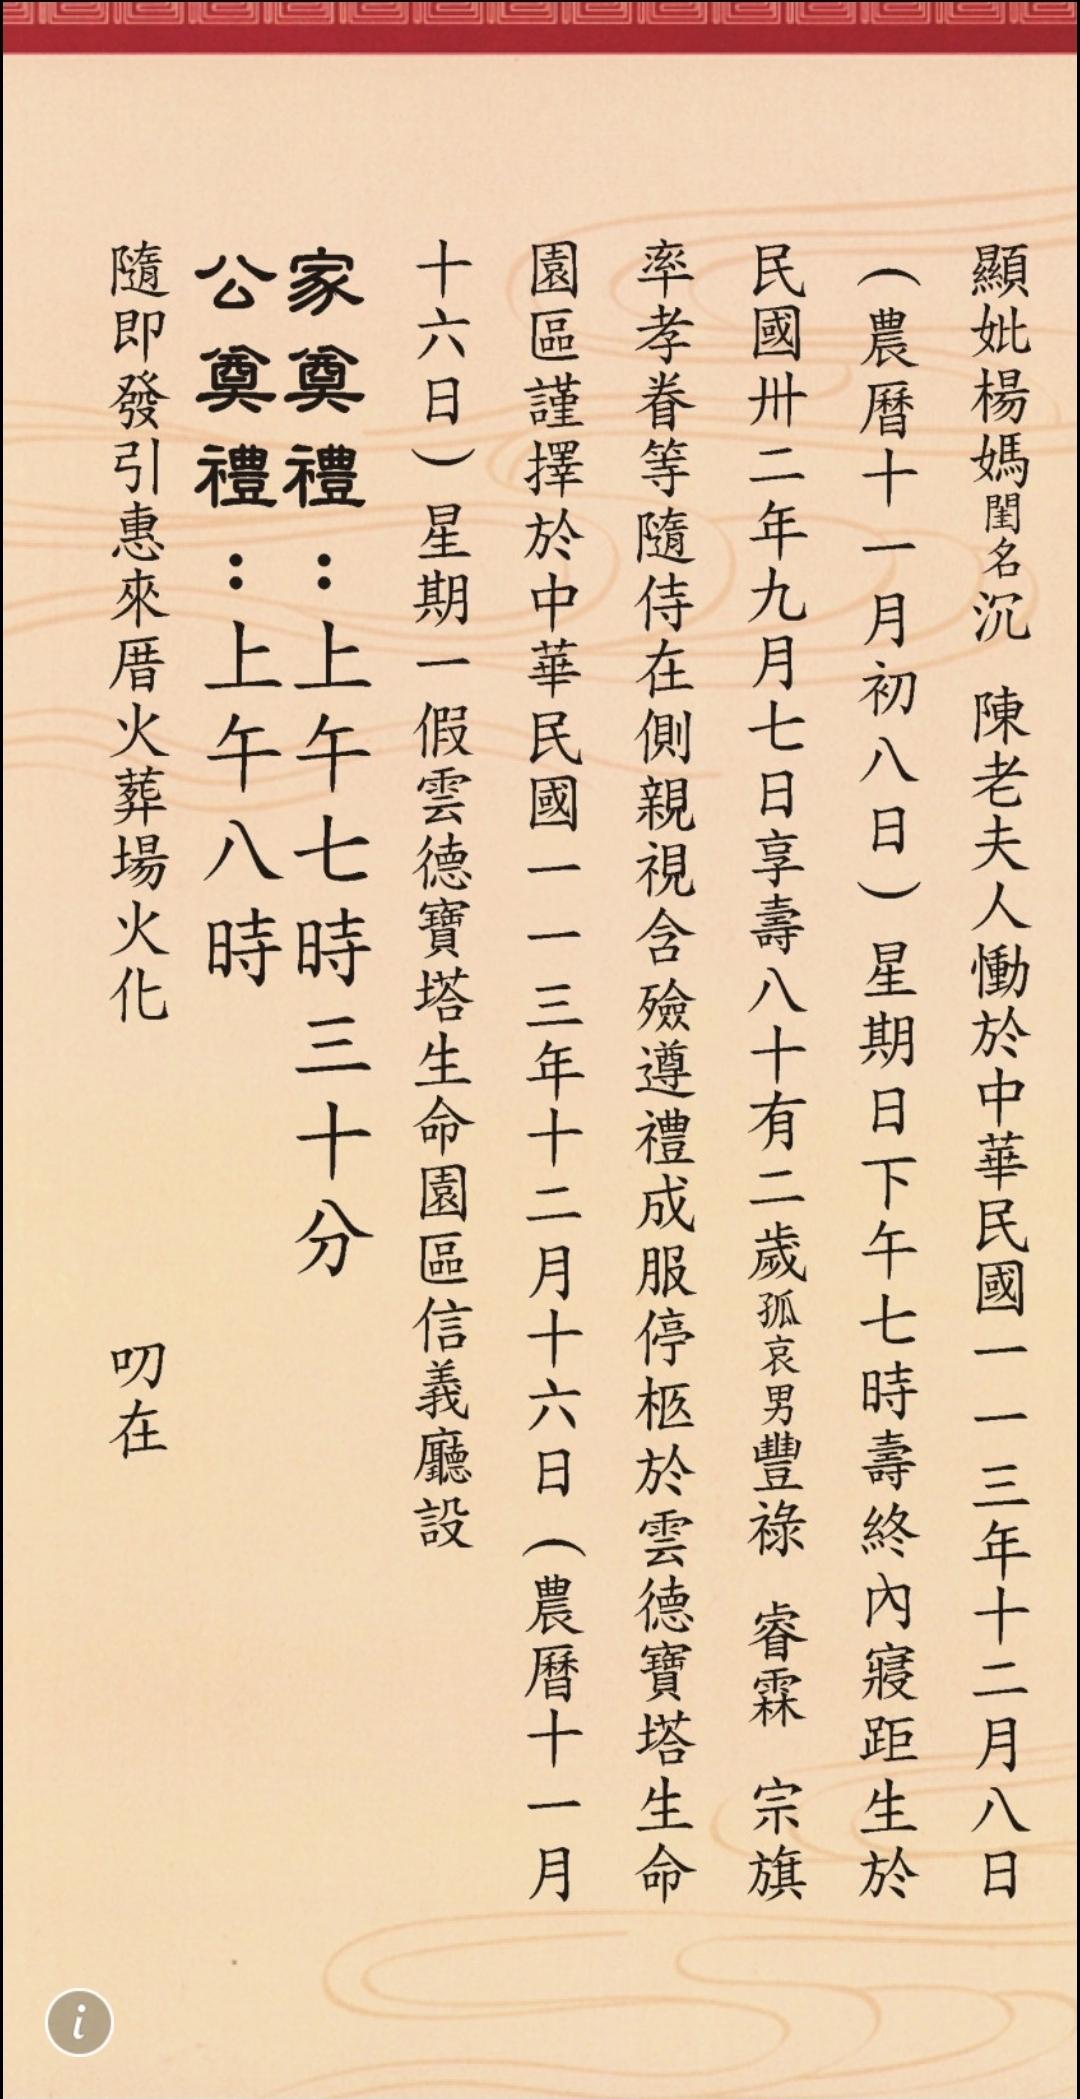 顯妣楊媽閨名沉　陳老夫人慟於中華民國一一三年十二月八日
（農曆十一月初八日）星期日下午七時壽終內寢距生於
民國卅二年九月七日享壽八十有二歲孤哀男豐祿　睿霖　宗旗
率孝眷等隨侍在側親視含殮遵禮成服停柩於雲德寶塔生命
園區謹擇於中華民國一一三年十二月十六日（農曆十一月
十六日）星期一假雲德寶塔生命園區信義廳設
家奠禮：上午七時三十分
公奠禮：上午八時
隨即發引惠來厝火葬場火化　叨在
i